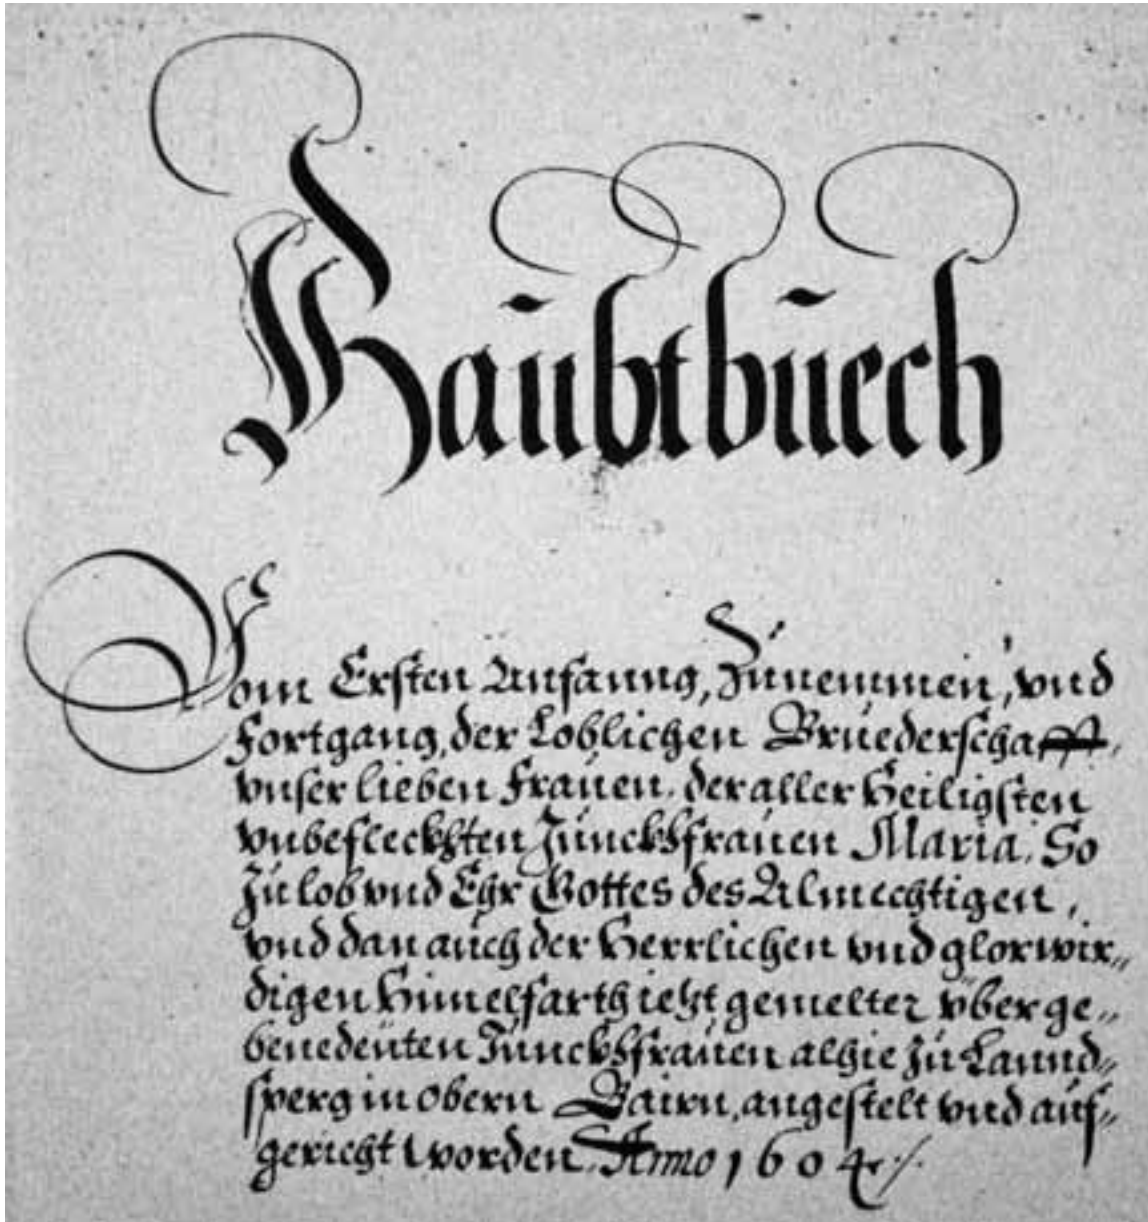 Haubtbuech
Vom Ersten Anfanng, Zunemmen, vnd
Fortgang, der Loblichen Bruederschafft,
vnser lieben Frauen, der aller Heiligsten
vnbefleckhten Junckhfrauen Maria, So
Zu lob vnd Ehr Gottes des Almechtigen,
vnd dan auch der Herrlichen vnd glorwir„
digen Himelfarth ietzt gemelter vberge„
benedeuten Junckhfrauen alhie zu Lannd„
sperg in obern Bairn, angestelt vnd auf„
gericht worden, Anno 1604 ./.